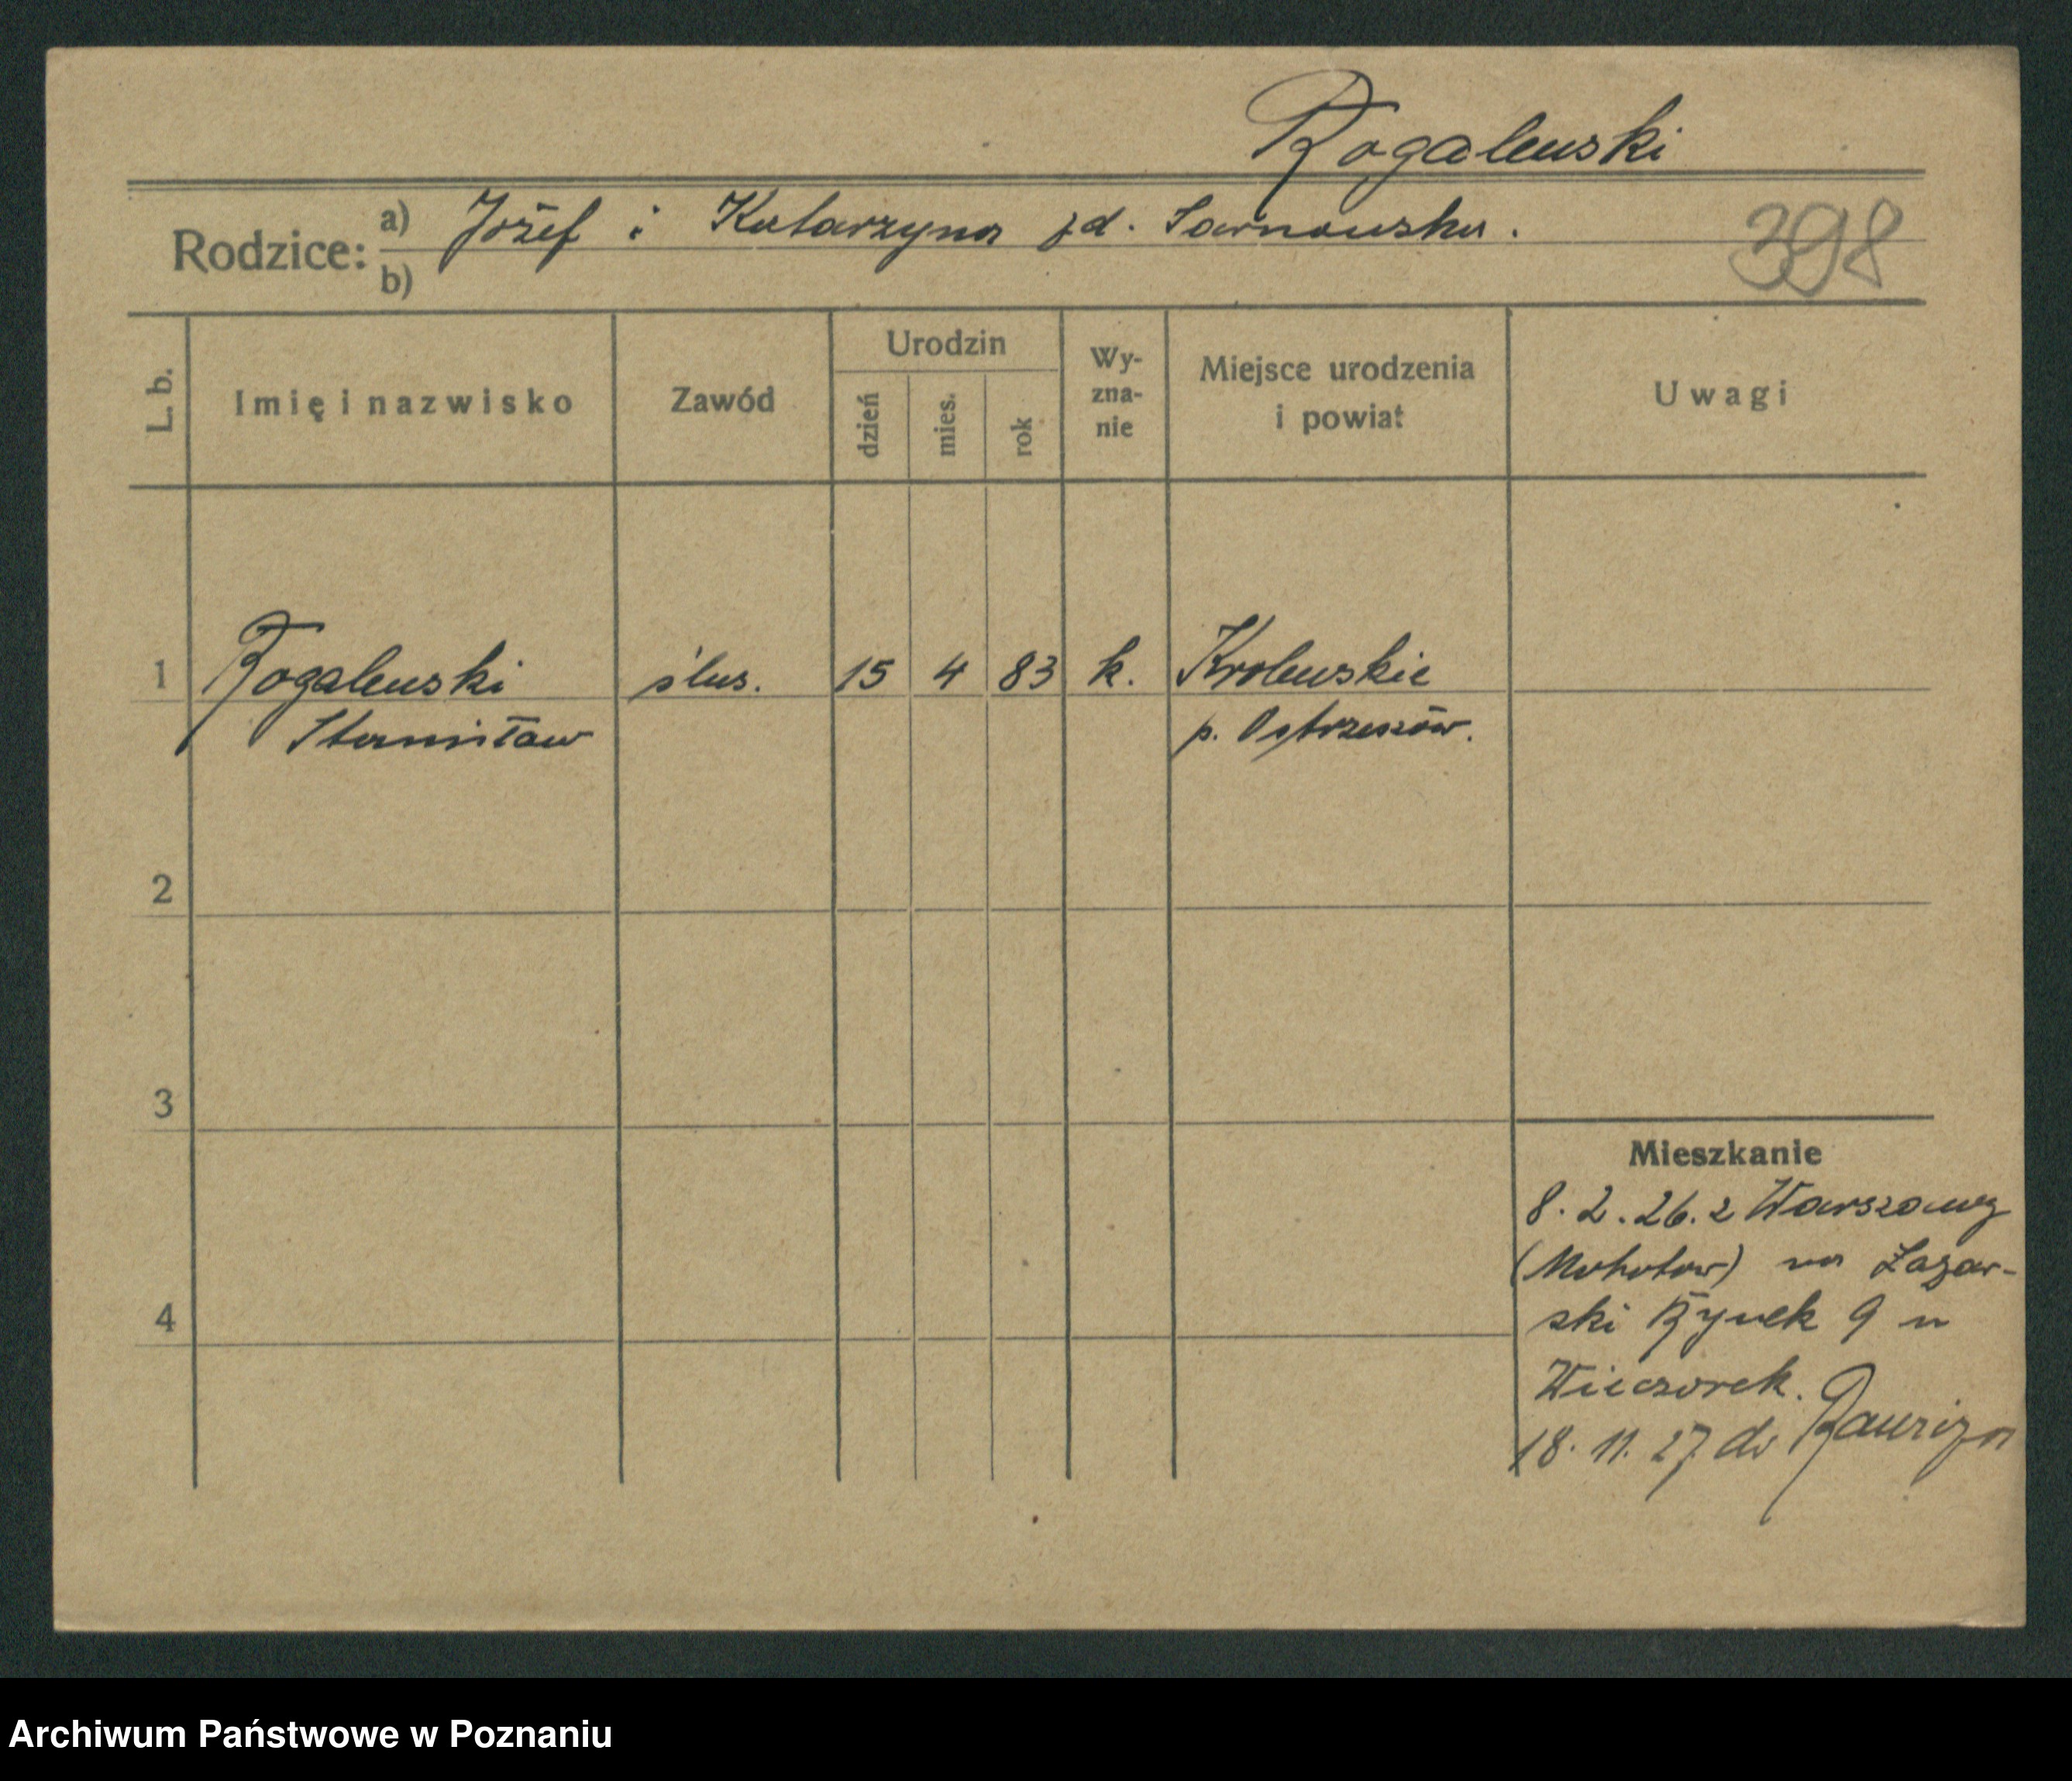 Rogalewski
Rodzice: a) Józef i Katarzyna zd. Sarnowska.
b)
398
L. b.
Imię i nazwisko
Zawód
Urodzin
dzień
mies.
rok
Wy-
zna-
nie
Miejsce urodzenia
i powiat
Uwagi
1 Rogalewski ślus. 15 4 83 k. Krolewskie
Stanisław p. Ostrzeszów.
2
3
4
Mieszkanie
8.2.26. z Warszawy
(Mokotow) na Łazar-
ski Rynek 9 u
Wieczorek.
18.11.27 do
Archiwum Państwowe w Poznaniu